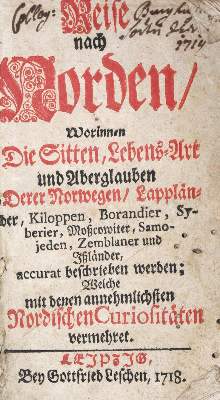 Reise
nach
Norden/
Worinnen
Die Sitten, Lebens-Art
und Aberglauben
Derer Norwegen/ Lapplän-
der, Kiloppen, Borandier, Sy-
berier, Moßcowiter, Samo-
jeden, Zemblaner und
Ißländer,
accurat beschrieben werden;
Welche
mit denen annehmlichsten
Nordischen Curiositäten
vermehret.
LEIPZIG,
Bey Gottfried Leschen, 1718.